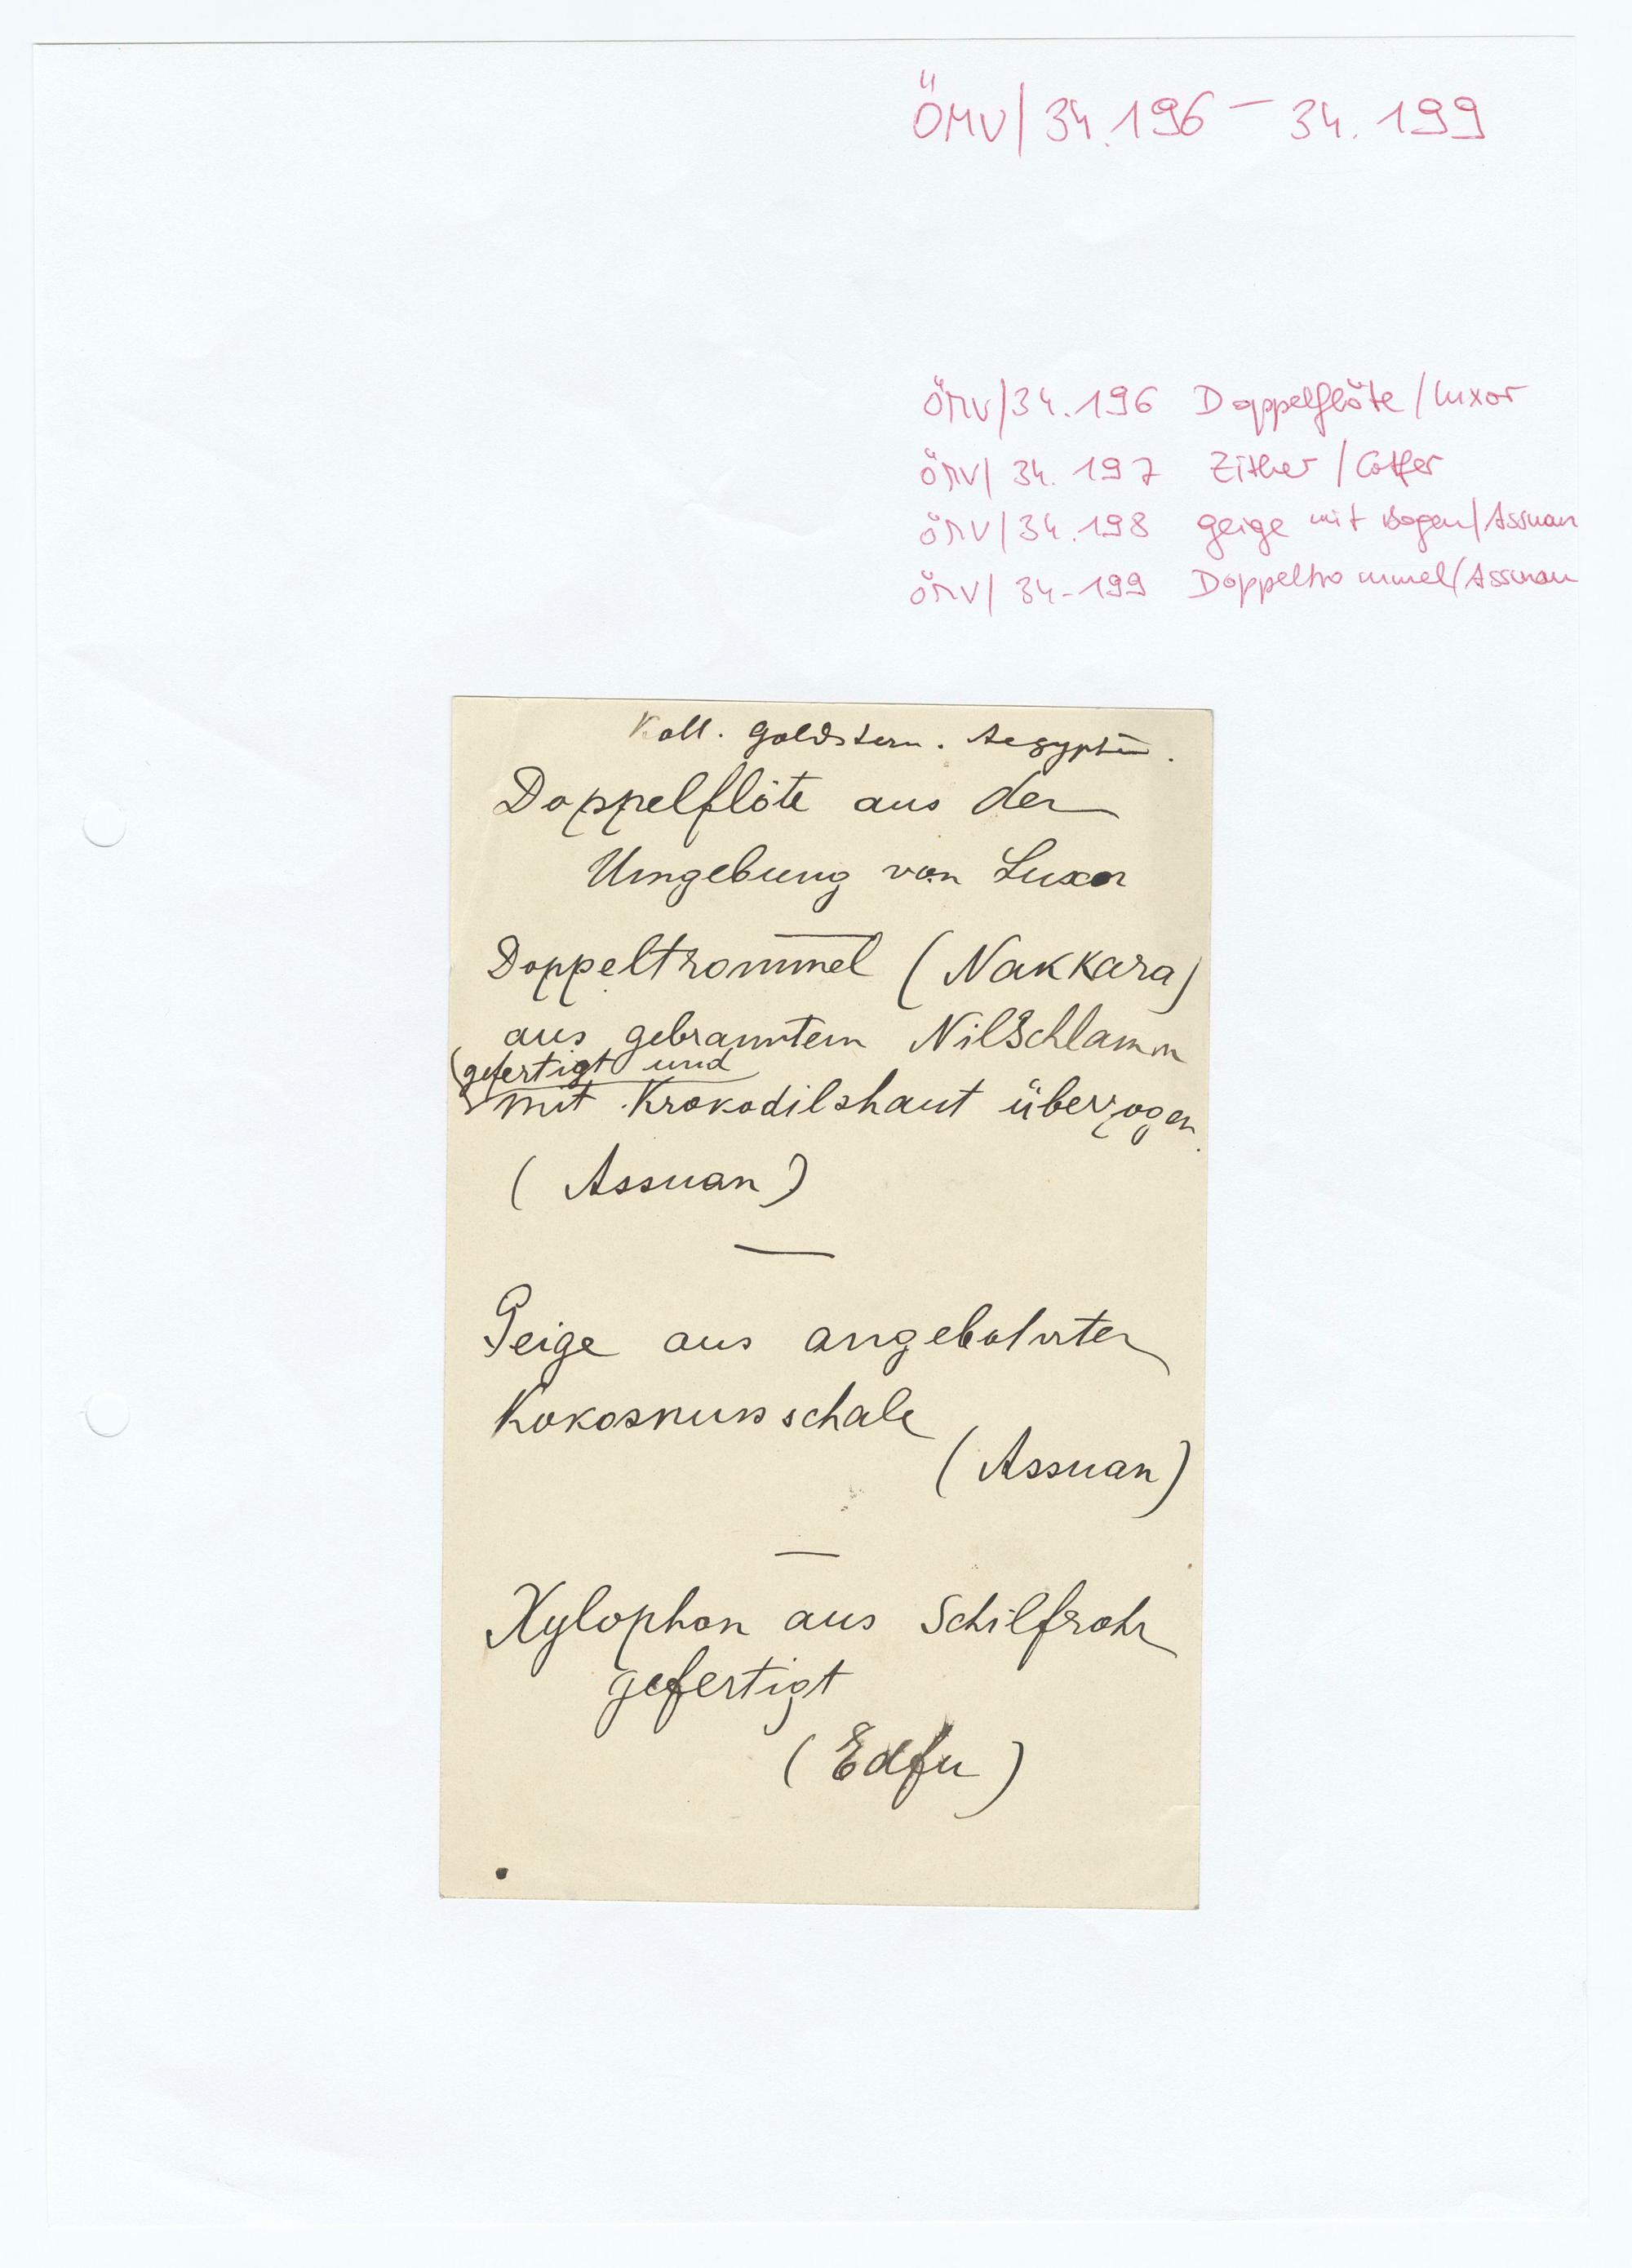 ÖMV/34.196 – 34.199
ÖMV/34.196 Doppelflöte/Luxor
ÖMV/34.197 Zither/
ÖMV/34.198 Geige mit Bogen/Assuan
ÖMV/34-199 Doppeltrommel/Assuan
Koll. Goldstern. Aegypten.
Doppelflöte aus der
Umgebung von Luxor
Doppeltrommel (Nakkara)
aus gebranntem NilSchlamm
gefertigt und
mit Krokodilshaut überzogen.
(Assuan)
—
Geige aus angebohrter
Kokosnussschale
(Assuan)
—
Xylophon aus Schilfrohr
gefertigt
(Edfu)